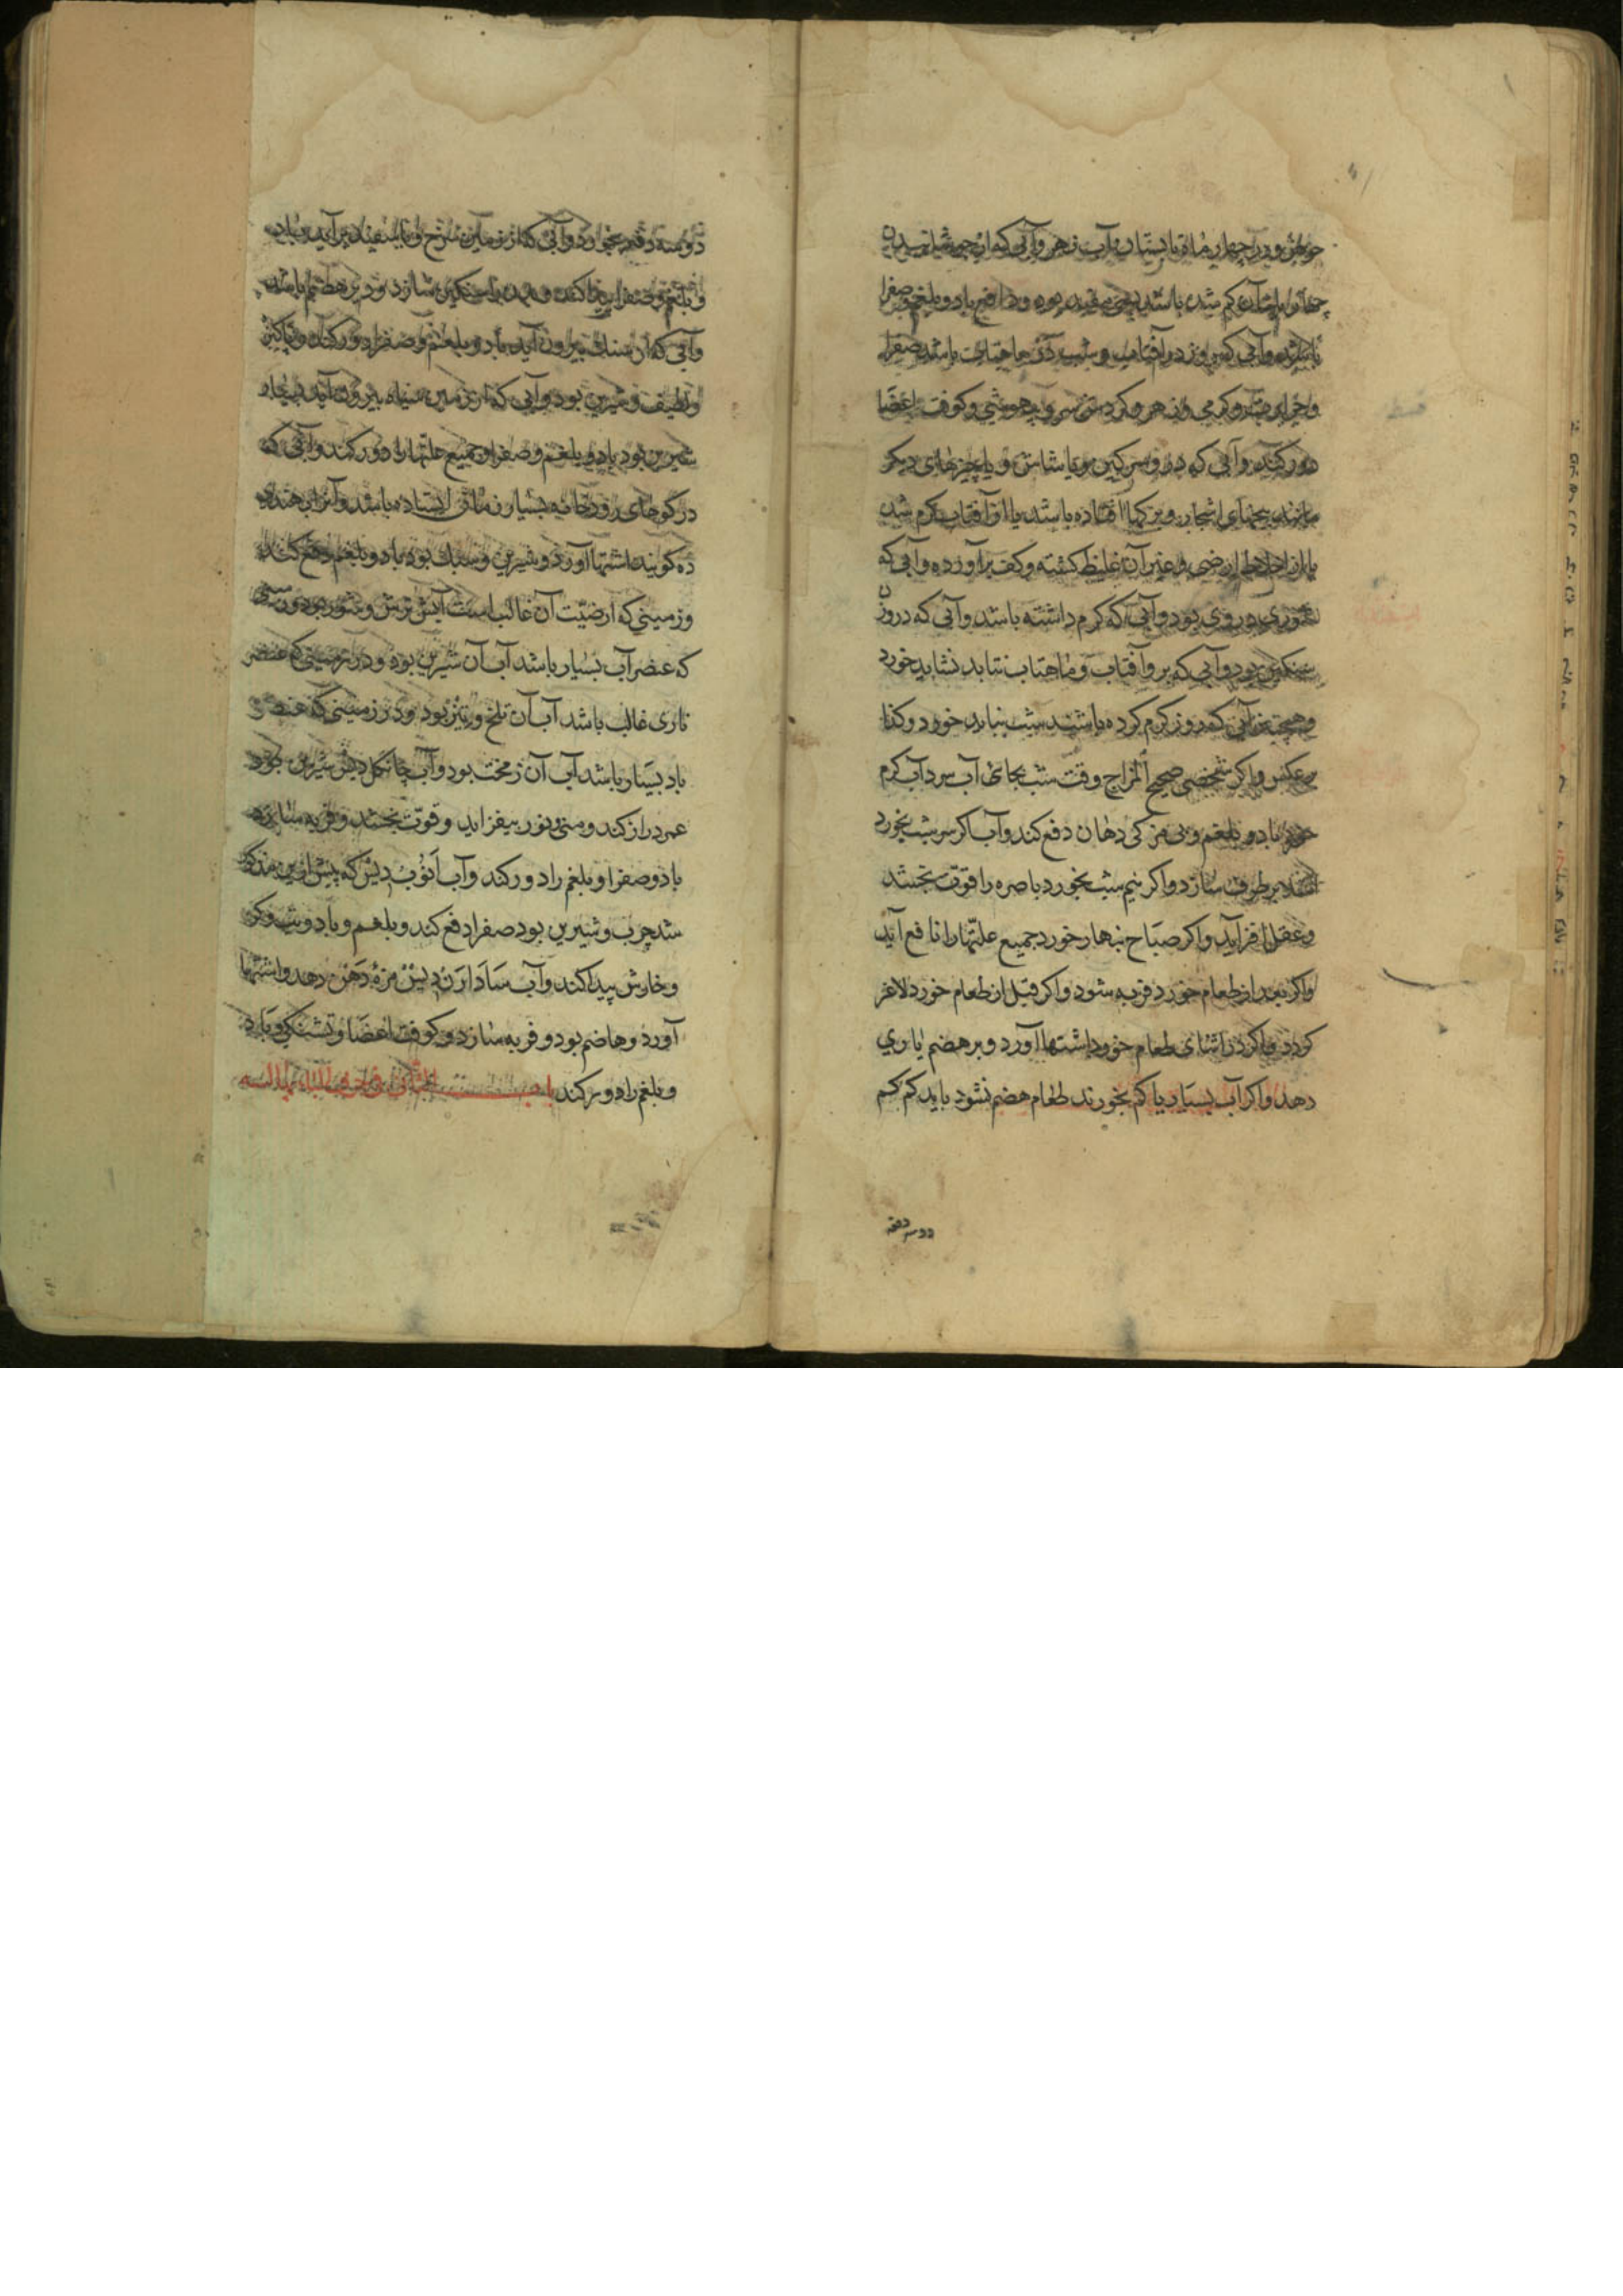 خوردن و در چهار ماه تابستان آب زهر و آبی که از جوشانیدن
چهارم حصه آن کم شده باشد مفید بود و دافع باد و بلغم و صفرا
باشد و آبی که روز در آفتاب و شب در ماهتاب باشد صفرا
و حرارت و کرمی و زهر و کردش سر و بیهوشی و کوفت اعضا
دور کند و آبی که درو سرکین و یا شاش و یا چیزهای دیکر
مانند بیخهای اشجار و برکها افتاده باشد یا از آفتاب کرم شده
یا از اخلاط ارضی و غیر آن غلیظ کشته و کف بر آورده و آبی که
شوری درو بود و آبی که کرم داشته باشد و آبی که در وزن
سنکین بود و آبی که بر و آفتاب و ماهتاب نتابد نشاید خورد
و همچنین آبی که روز کرم کرده باشند شب نباید خورد و کذا
بر عکس و اکر شخصی صحیح المزاج وقت شب بجای آب سرد آب کرم
خورد باد و بلغم و بی مزکی دهان دفع کند و آب اکر سر شب بخورد
بر طرف سازد و اکر نیم شب بخورد باصره را قوت بخشد
و عقل افزاید و اکر صباح نهار خورد جمیع علتها را نافع آید
و اکر بعد از طعام خورد فربه شود و اکر قبل از طعام خورد لاغر
کردد و اکر در اثنای طعام خورد اشتها آورد و بر هضم یاری
دهد و اکر آب بسیار یا کم بخورند طعام هضم نشود باید کم کم
دو سه دفعه
دو سه دفعه بخورد و آبی که از زمین سرخ و یا سفید بر آید باد
و بلغم و صفرا پیدا کند و بدن را سنکین سازد و دیر هضم باشد
و آبی که از سنک بیرون آید باد و بلغم و صفرا دور کند و پاکیزه
و لطیف و شیرین بود و آبی که از زمین سیاه بیرون آید
شیرین بود باد و بلغم و صفرا و جمیع علتها را دور کند و آبی که
در کوهای رودخانه بسیار زمانی ایستاده باشد و آنرا بهندوی
ده کویند اشتها آورد و شیرین و سبک بود باد و بلغم دفع کند
و زمینی که ارضیت آن غالب است آبش ترش و شور بود و زمینی
که عنصر آب بسیار باشد آب آن شیرین بود و در زمینی که عنصر
ناری غالب باشد آب آن تلخ و تیز بود و در زمینی که عنصر
باد بسیار باشد آب آن زمخت بود و آب جانکل دیش شیرین بود
عمر دراز کند و منی و نور بیفزاید و قوت بخشد و فربه سازد
باد و صفرا و بلغم را دور کند و آب انوب دیش که پیش ازین مذکور
شد چرب و شیرین بود صفرا دفع کند و بلغم و باد و تب و کرم
و خارش پیدا کند و آب سادارن دیش مزه دهن دهد و اشتها
آورد و هاضم بود و فربه سازد و کوفت اعضا و تشنکی و باد
و بلغم را دور کند باب